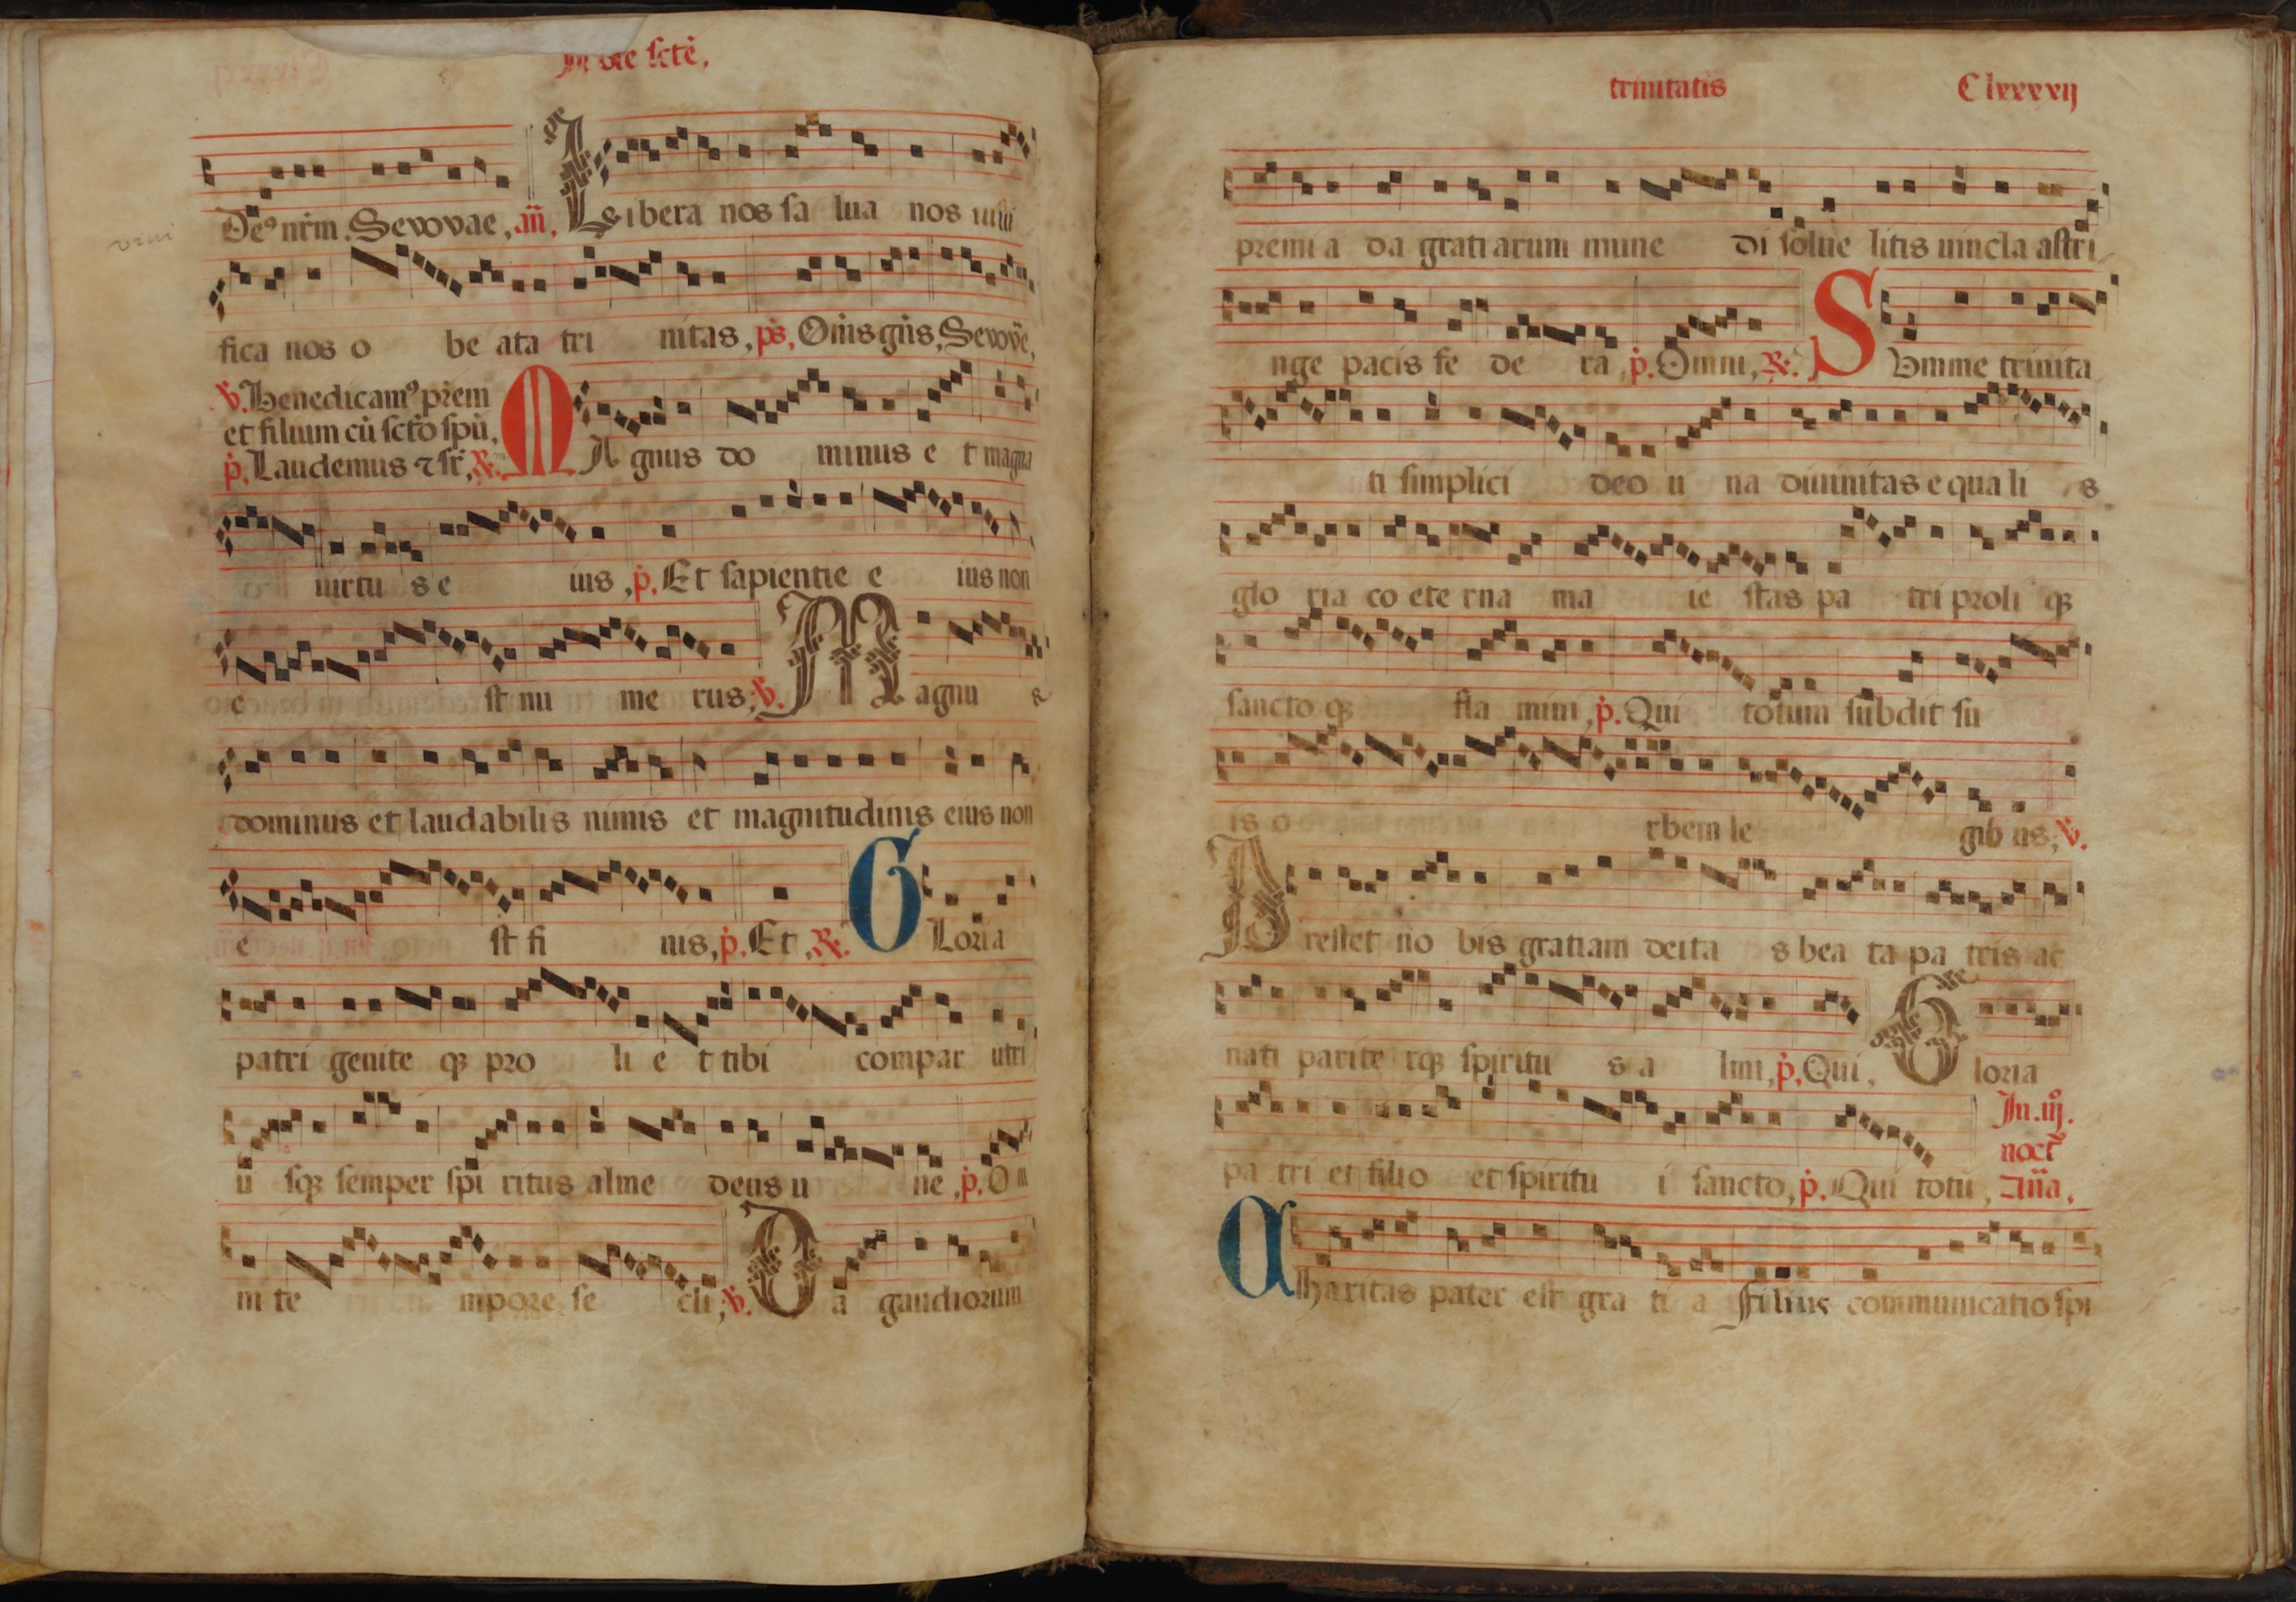 In die scte.
De9 nrm. Sevovae, an. Libera nos sa lua nos iuui
vivi
fica nos o be ata tri nitas, ps, Omsgns, Sevove,
V. Benedicam9 prem
et filium cu scto spu,
p. Laudemus ⁊ sr, R.
MA gnus do minus e t magna
uirtu s e ius, p. Et sapientie e ius non
e st nu me rus, V. Magnu s
dominus et laudabilis nimis et magnitudinis eius non
e st fi nis, p. Et, R. GLoria
patri genite qȝ pro li e t tibi compar utri
u sqȝ semper spi ritus alme deus u ne, p. O m
ni te mpore se cli, V. Da gaudiorum
trinitatis Clxxxxij
premi a da grati arum mune di solue litis uincla astri
nge pacis fe de ra, p. Omni, R. SVmme trinita
ti simplici deo u na diuinitas e qua li s
glo ria co ete rna ma ie stas pa tri proli qȝ
sancto qȝ fla mini, p. Qui totum subdit su
is o rbem le gib us, V.
Prestet no bis gratiam deita s bea ta pa tris ac
nati parite rqȝ spiritu s a lmi, p. Qui, Gloria
In .iij.
noct
pa tri et filio et spiritu i sancto, p. Qui totu, Ana,
Charitas pater est gra ti a filius communicatio spi